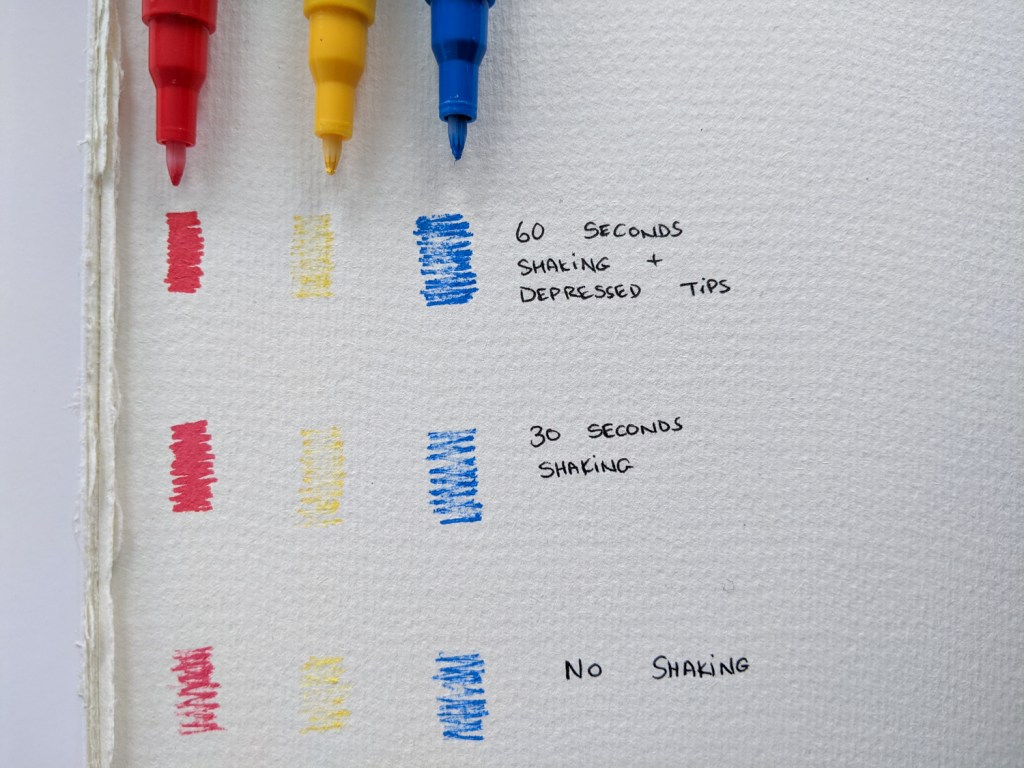 60 SECONDS
SHAKiNG +
DEPRESSED TiPS
30 SECONDS
SHAKiNG
NO SHAKiNG